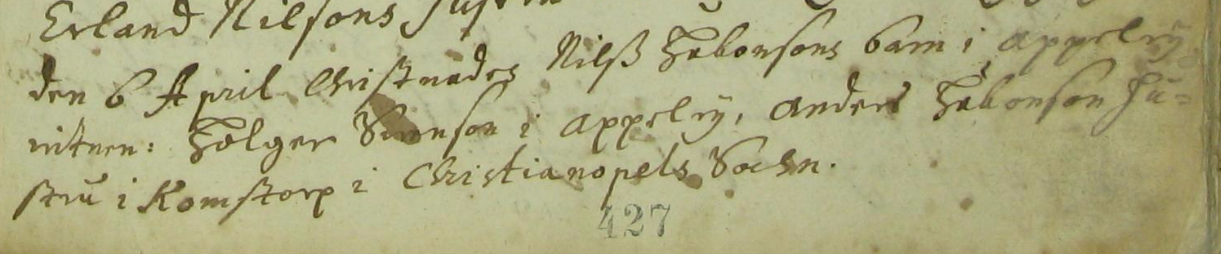 Erland Nilsons Hustru
den 6 April Christnades Nilß Håkonsons barn i Appelry
vitnen: Holger Svenson i Appelry, Anders Håkonson Hu=
stru i Komstorp i Christianopels Sochn.
427